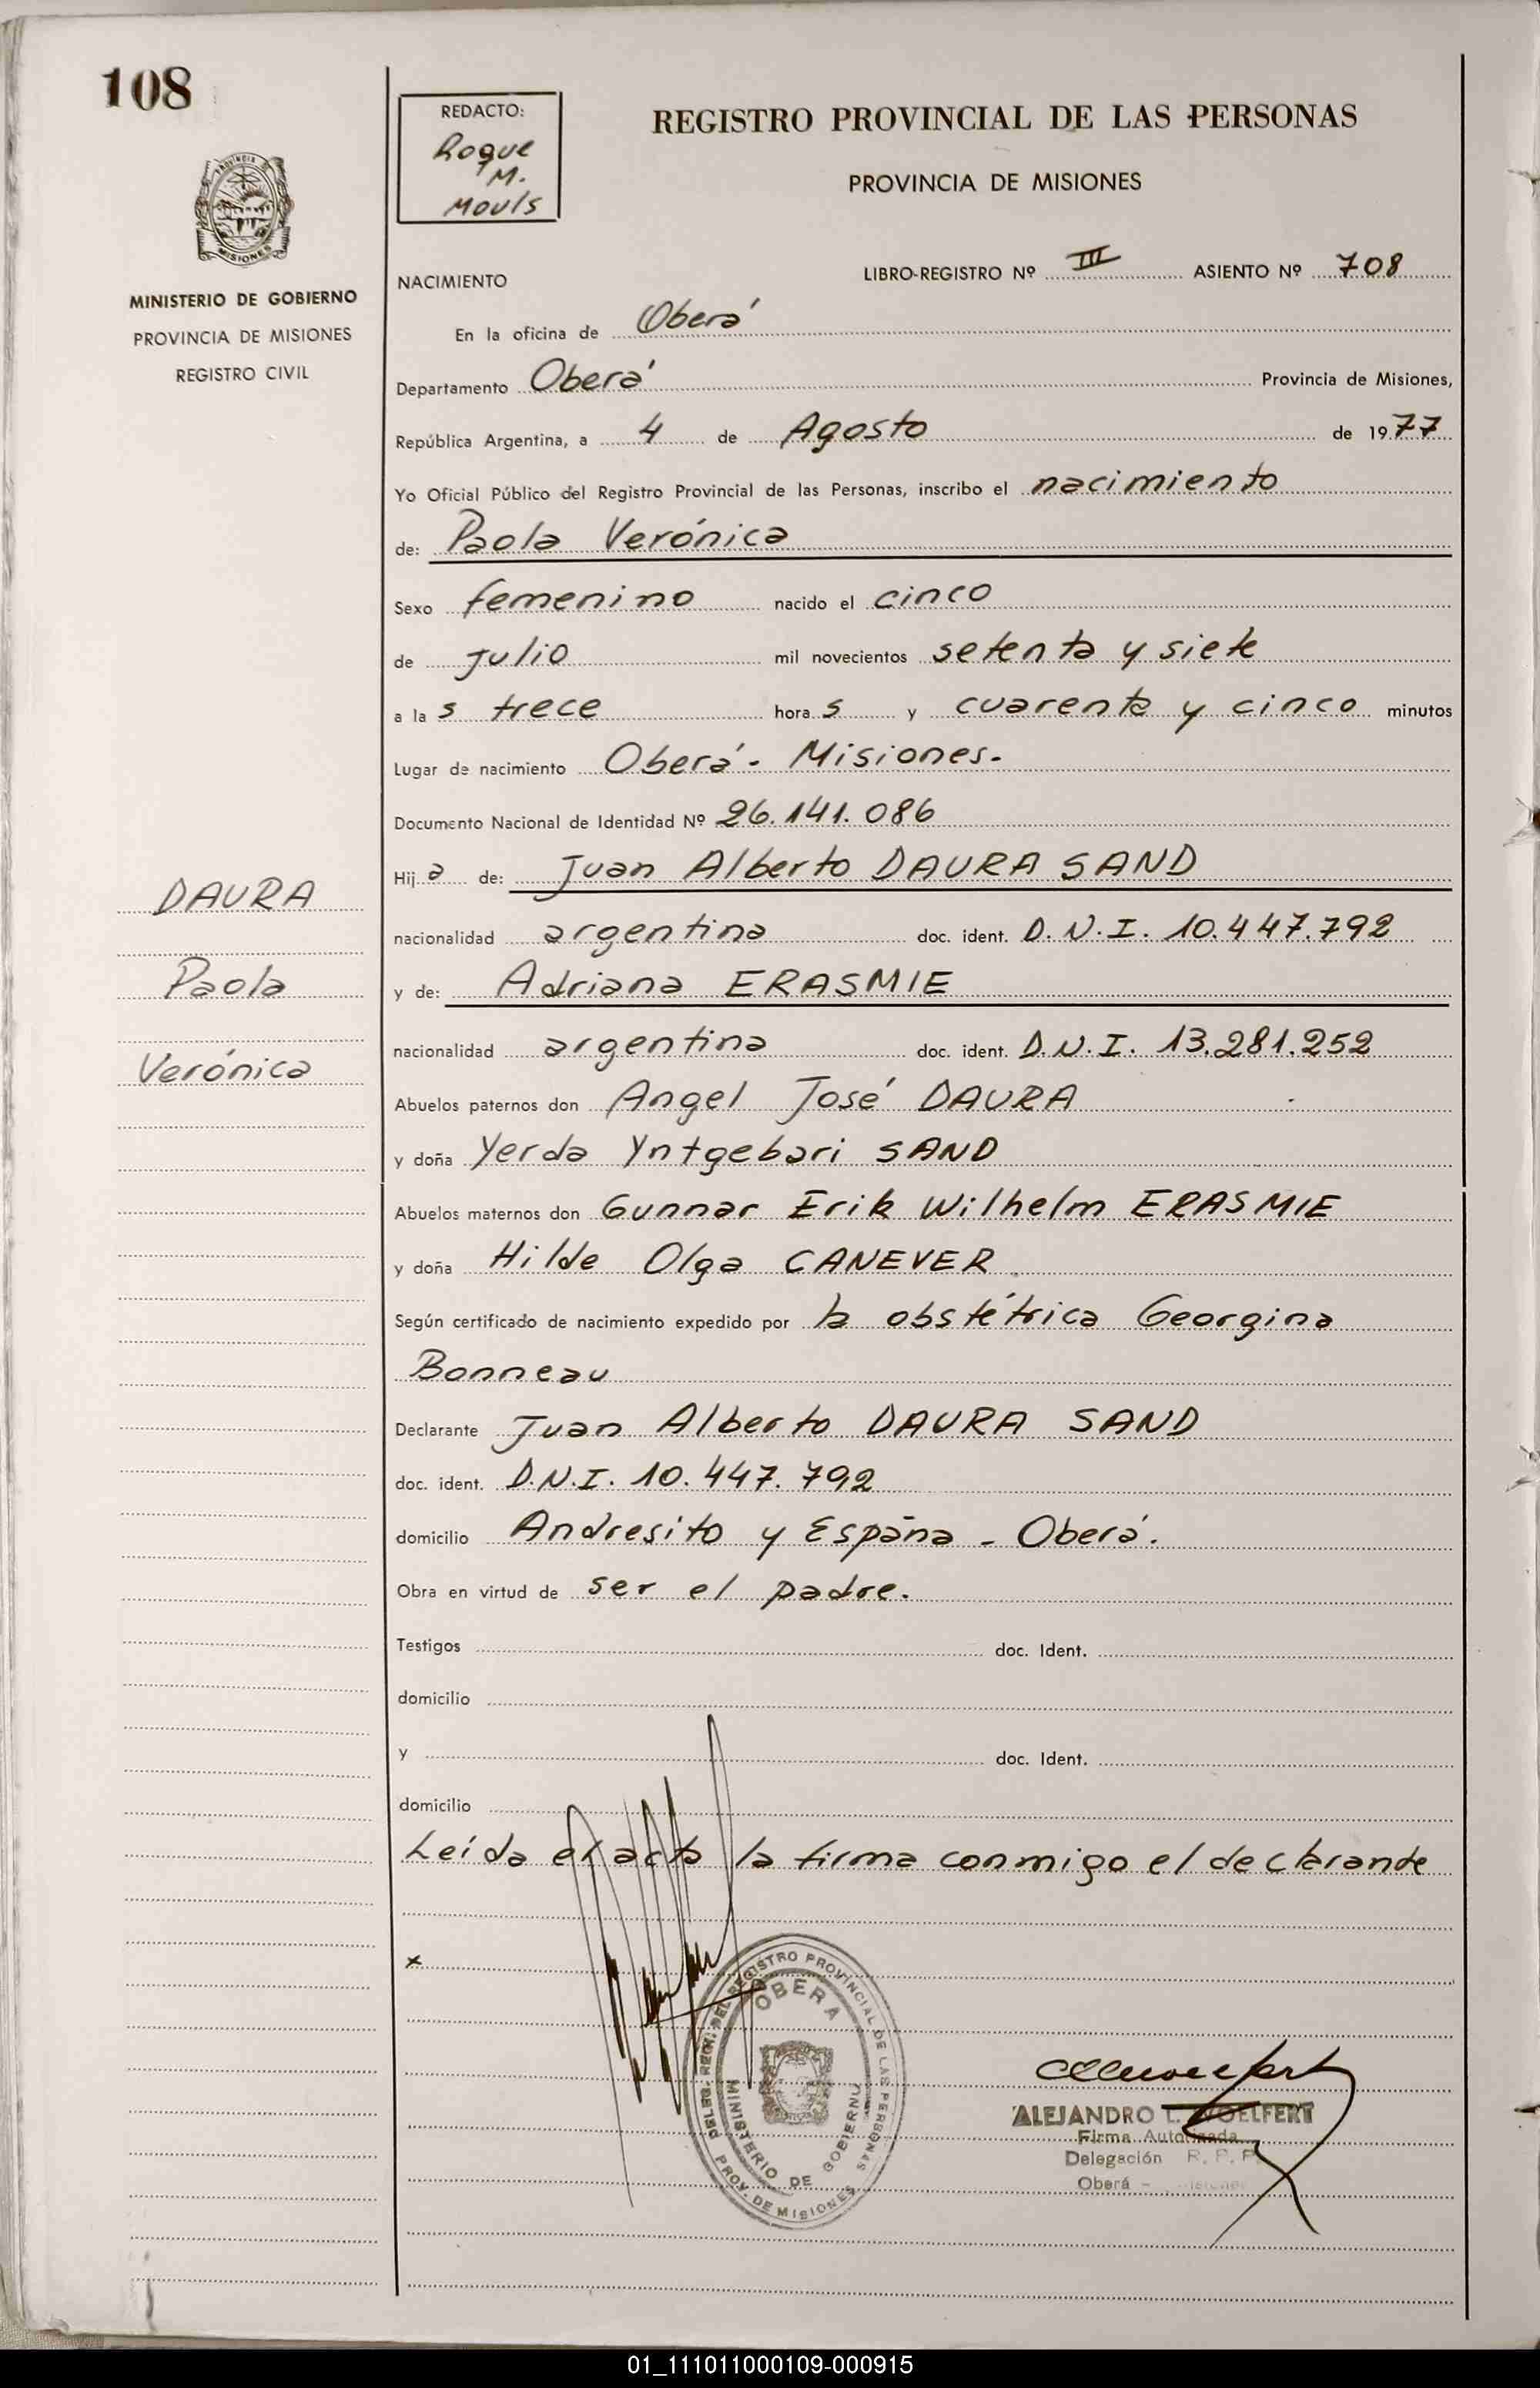 108
REDACTO:
Roque
M.
Mouls
REGISTRO PROVINCIAL DE LAS PERSONAS
PROVINCIA DE MISIONES
PROVINCIA DE
MISIONES
MINISTERIO DE GOBIERNO
PROVINCIA DE MISIONES
REGISTRO CIVIL
NACIMIENTO
LIBRO-REGISTRO Nº III ASIENTO Nº 708
En la oficina de Oberá
Departamento Oberá Provincia de Misiones,
República Argentina, a 4 de Agosto de 1977
Yo Oficial Público del Registro Provincial de las Personas, inscribo el nacimiento
de: Paola Verónica
Sexo femenino nacido el cinco
de julio mil novecientos setenta y siete
a las trece horas y cuarenta y cinco minutos
Lugar de nacimiento Oberá - Misiones.
Documento Nacional de Identidad Nº 26.141.086
Hija de: Juan Alberto DAURA SAND
nacionalidad argentina doc. ident. D.N.I. 10.447.792
y de: Adriana ERASMIE
nacionalidad argentina doc. ident. D.N.I. 13.281.252
Abuelos paternos don Angel José DAURA
y doña Yerda Yntgebari SAND
Abuelos maternos don Gunnar Erik Wilhelm ERASMIE
y doña Hilde Olga CANEVER
Según certificado de nacimiento expedido por la obstétrica Georgina
Bonneau
Declarante Juan Alberto DAURA SAND
doc. ident. D.N.I. 10.447.792
domicilio Andresito y España - Oberá.
Obra en virtud de ser el padre.
Testigos doc. Ident.
domicilio
y doc. Ident.
domicilio
Leída el acta la firma conmigo el declarante
x
DAURA
Paola
Verónica
DELEG. REGN. DEL REGISTRO PROVINCIAL DE LAS PERSONAS
OBERA
MINISTERIO DE GOBIERNO
PROV. DE MISIONES
ALEJANDRO L. WOELFERT
Firma Autorizada
Delegación R. P. P.
Oberá - Misiones
01_111011000109-000915